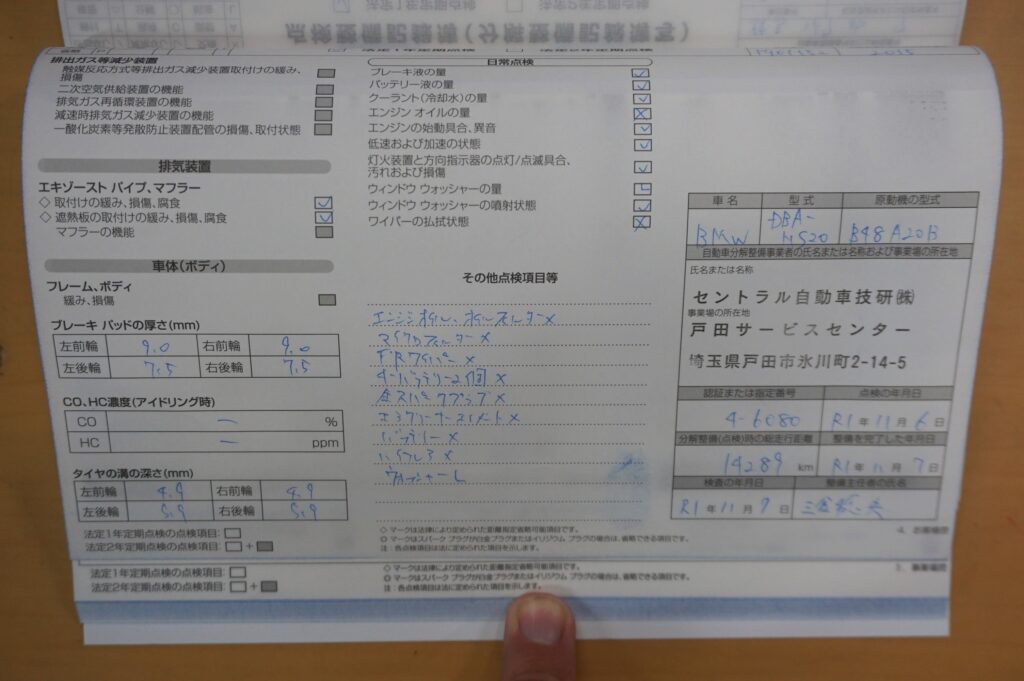 点検整備記録簿(分解整備記録簿)
法定1年定期点検
法定2年定期点検
排出ガス等減少装置
触媒反応方式等排出ガス減少装置取付けの緩み、
損傷
二次空気供給装置の機能
排気ガス再循環装置の機能
減速時排気ガス減少装置の機能
一酸化炭素等発散防止装置配管の損傷、取付状態
排気装置
エキゾースト パイプ、マフラー
◇ 取付けの緩み、損傷、腐食
◇ 遮熱板の取付けの緩み、損傷、腐食
マフラーの機能
車体(ボディ)
フレーム、ボディ
緩み、損傷
ブレーキ パッドの厚さ(mm)
左前輪 9.0 右前輪 9.0
左後輪 7.5 右後輪 7.5
CO、HC濃度(アイドリング時)
CO ー %
HC ー ppm
タイヤの溝の深さ(mm)
左前輪 4.9 右前輪 4.9
左後輪 5.9 右後輪 5.9
法定1年定期点検の点検項目:
法定2年定期点検の点検項目: +
日常点検
ブレーキ液の量
バッテリー液の量
クーラント(冷却水)の量
エンジン オイルの量
エンジンの始動具合、異音
低速および加速の状態
灯火装置と方向指示器の点灯/点滅具合、
汚れおよび損傷
ウィンドウ ウォッシャーの量
ウィンドウ ウォッシャーの噴射状態
ワイパーの払拭状態
その他点検項目等
エンジンオイル、オイルフィルター×
マイクロフィルター×
FRワイパー×
キーバッテリー2個×
全スパークプラグ×
エアクリーナーエレメント×
バッテリー×
ウォッシャーL
◇ マークは法律により定められた距離指定省略可能項目です。
✪ マークはスパーク プラグが白金プラグまたはイリジウム プラグの場合は、省略できる項目です。
注:各点検項目は法に定められた項目を示します。
車名 型式 原動機の型式
BMW DBA-HS20 B48A20B
自動車分解整備事業者の氏名または名称および事業場の所在地
氏名または名称
セントラル自動車技研㈱
事業場の所在地
戸田サービスセンター
埼玉県戸田市氷川町2-14-5
認証または指定番号 点検の年月日
4-6080 R1年11月6日
分解整備(点検)時の総走行距離 整備を完了した年月日
14289 km R1年11月7日
検査の年月日 整備主任者の氏名
R1年11月9日
4.
法定1年定期点検の点検項目:
法定2年定期点検の点検項目: +
◇ マークは法律により定められた距離指定省略可能項目です。
✪ マークはスパーク プラグが白金プラグまたはイリジウム プラグの場合は、省略できる項目です。
注:各点検項目は法に定められた項目を示します。
3.